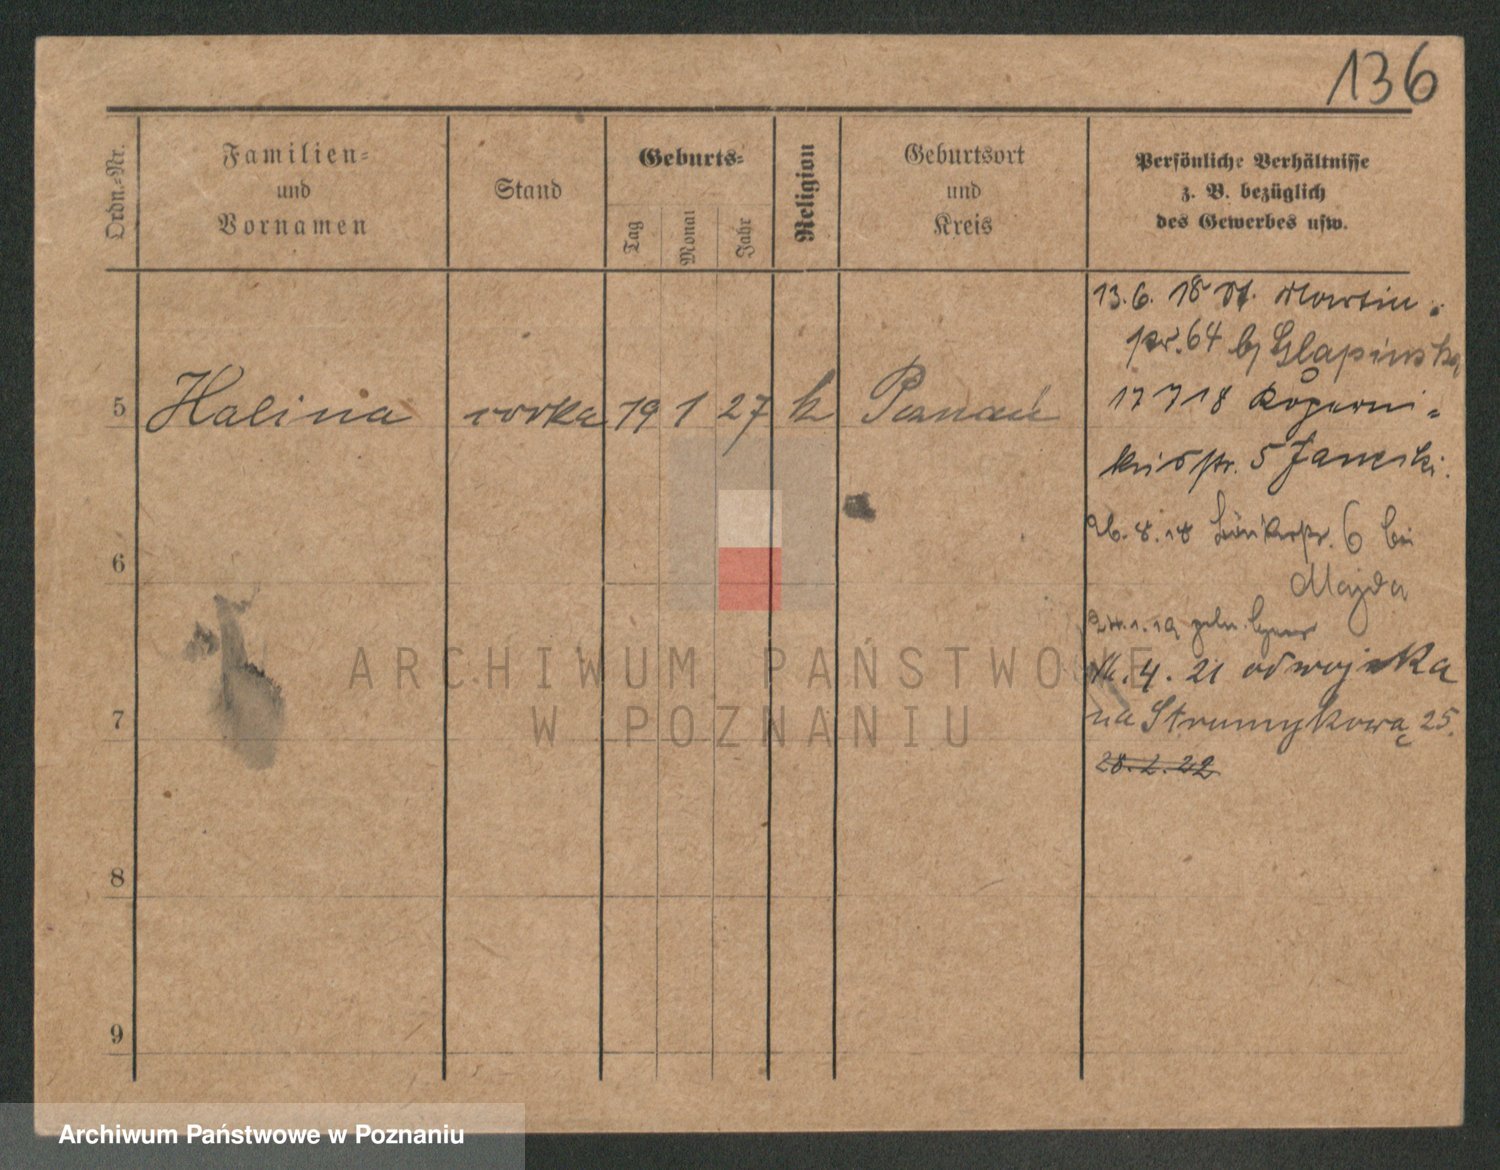 136
Ordn.-Nr.
Familien-
und
Vornamen
Stand
Geburts-
Tag
Monat
Jahr
Religion
Geburtsort
und
Kreis
Persönliche Verhältnisse
z. B. bezüglich
des Gewerbes usw.
13.6. 18 St. Martin
str. 64 b/ Glapinska
5 Halina córka 19 1 27 k Poznań
17 7 18
str. 5
26.8.18 6 bei
Majda
24.1.19
4. 21 od wojska
na Strumykową 25.
28.2.22
6
7
8
9
ARCHIWUM PAŃSTWOWE
W POZNANIU
Archiwum Państwowe w Poznaniu